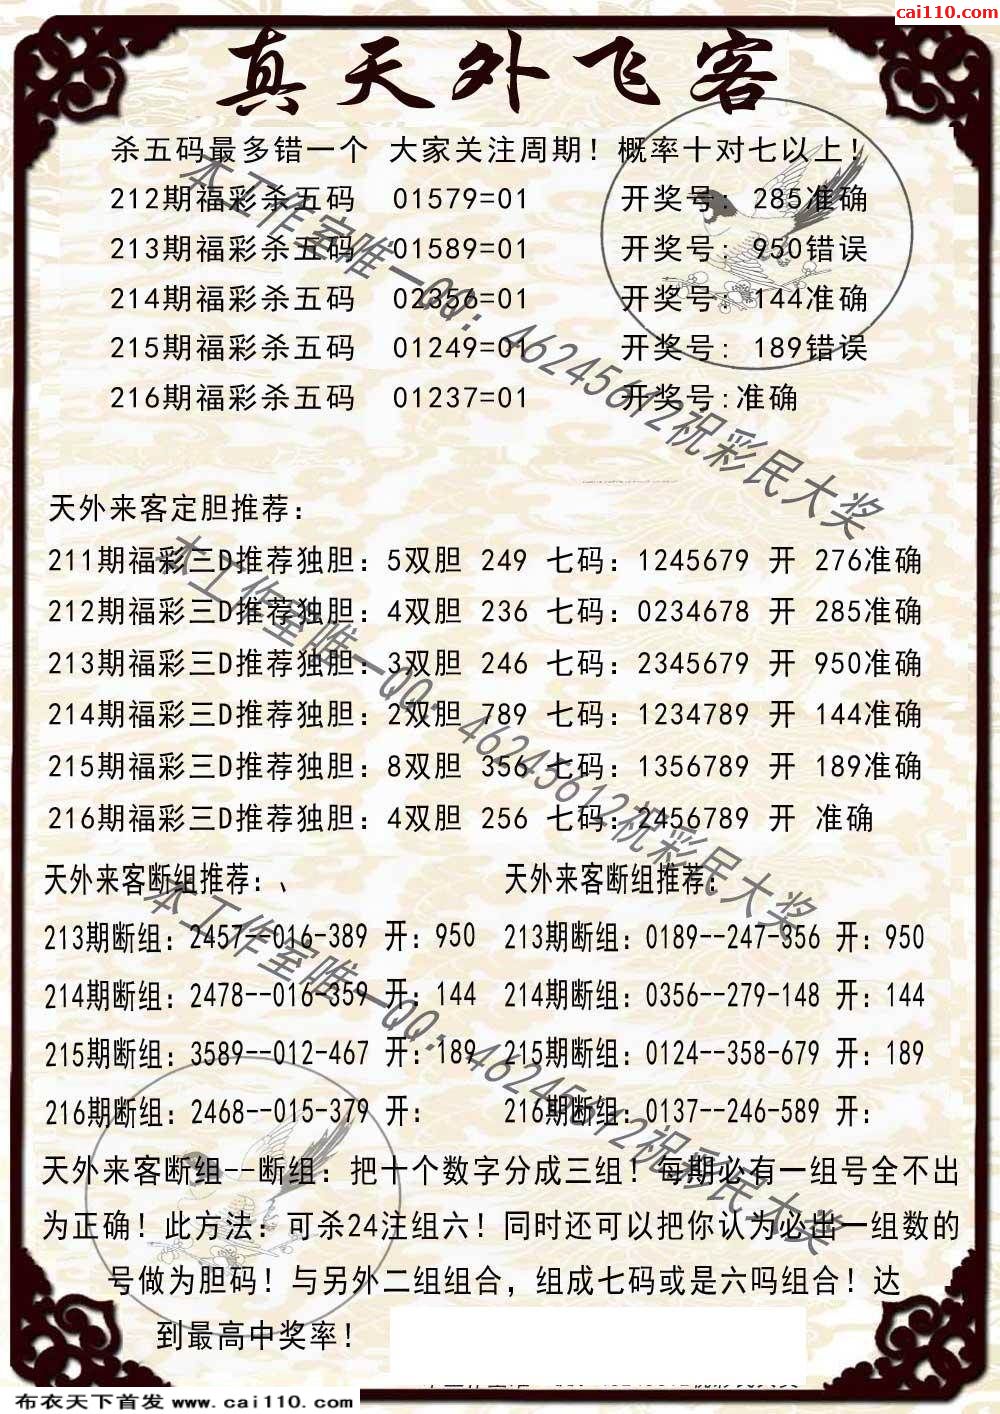 cai110.com
真天外飞客
杀五码最多错一个 大家关注周期！概率十对七以上！
212期福彩杀五码 01579=01 开奖号：285准确
213期福彩杀五码 01589=01 开奖号：950错误
214期福彩杀五码 02356=01 开奖号：144准确
215期福彩杀五码 01249=01 开奖号：189错误
216期福彩杀五码 01237=01 开奖号:准确
本工作室唯一QQ：46245612祝彩民大奖
天外来客定胆推荐：
211期福彩三D推荐独胆：5双胆 249 七码：1245679 开 276准确
212期福彩三D推荐独胆：4双胆 236 七码：0234678 开 285准确
213期福彩三D推荐独胆：3双胆 246 七码：2345679 开 950准确
214期福彩三D推荐独胆：2双胆 789 七码：1234789 开 144准确
215期福彩三D推荐独胆：8双胆 356 七码：1356789 开 189准确
216期福彩三D推荐独胆：4双胆 256 七码：2456789 开 准确
本工作室唯一QQ：46245612祝彩民大奖
天外来客断组推荐：、 天外来客断组推荐：
213期断组：2457--016-389 开：950 213期断组：0189--247-356 开：950
214期断组：2478--016-359 开：144 214期断组：0356--279-148 开：144
215期断组：3589--012-467 开：189 215期断组：0124--358-679 开：189
216期断组：2468--015-379 开： 216期断组：0137--246-589 开：
本工作室唯一QQ：46245612祝彩民大奖
天外来客断组--断组：把十个数字分成三组！每期必有一组号全不出
为正确！此方法：可杀24注组六！同时还可以把你认为必出一组数的
号做为胆码！与另外二组组合，组成七码或是六吗组合！达
到最高中奖率！
布衣天下首发 www.cai110.com